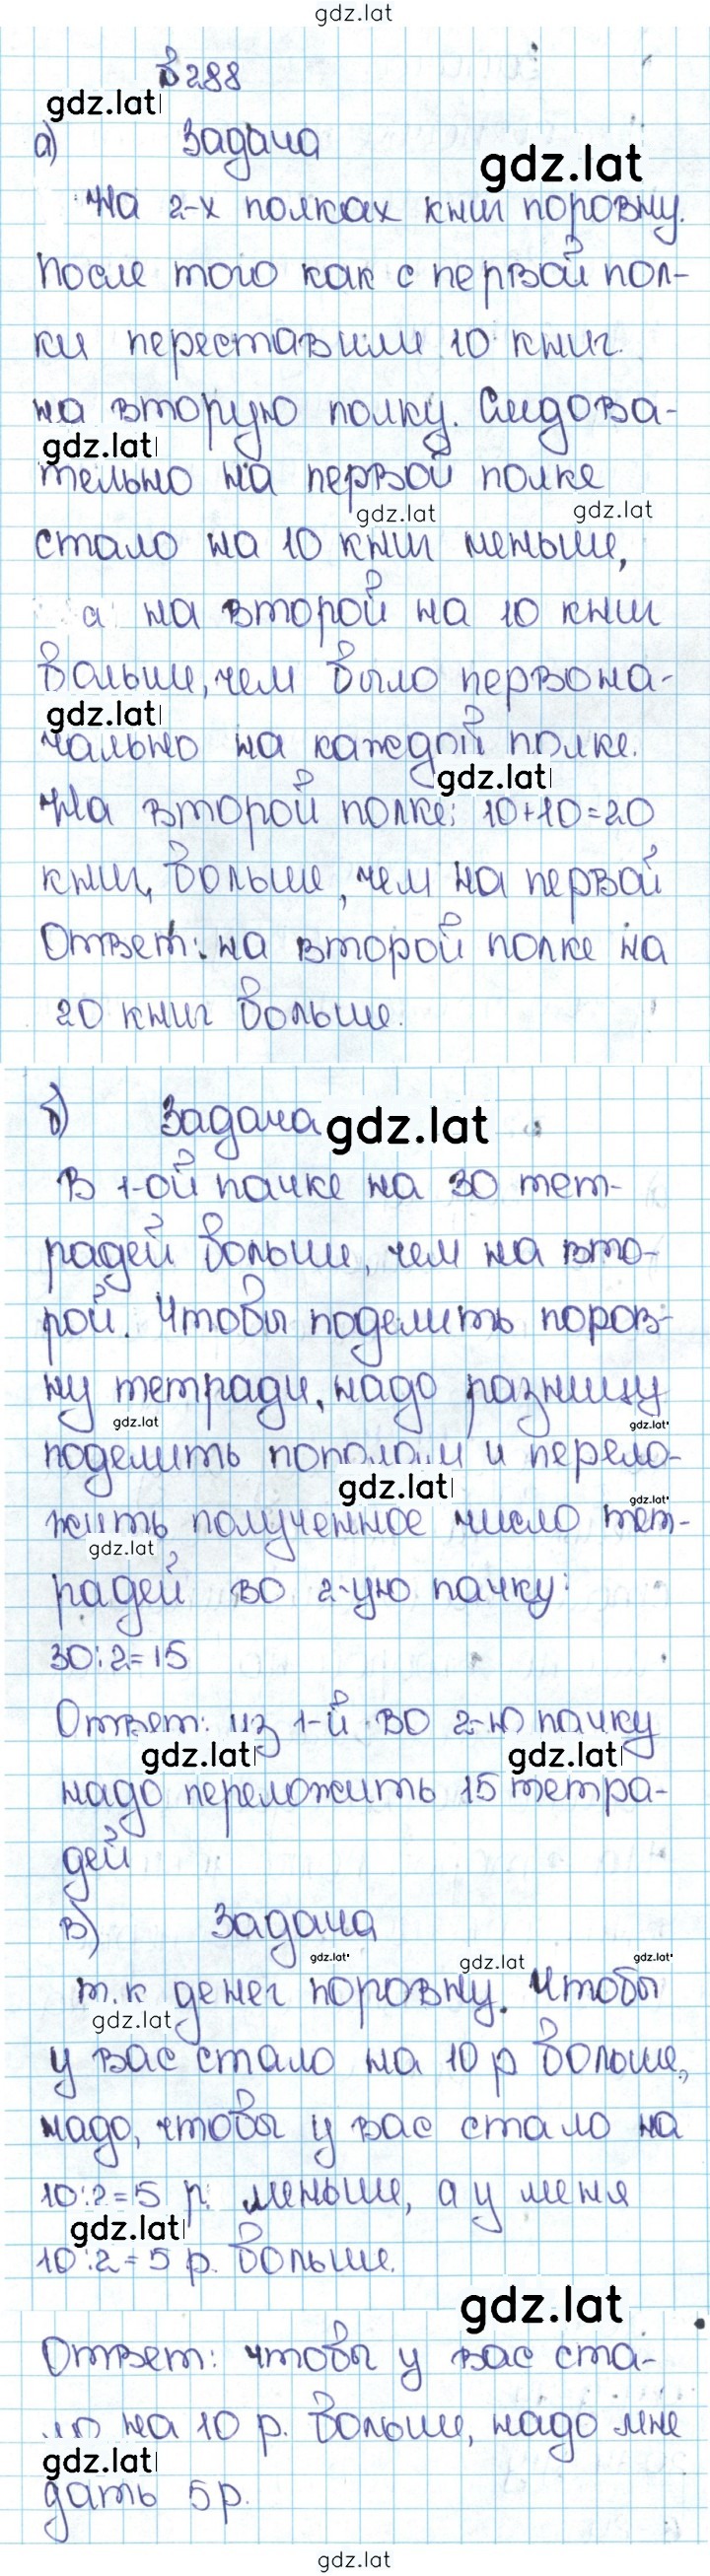 gdz.lat
№288
gdz.lat
а) Задача
gdz.lat
На 2-х полках книг поровну.
После того как с первой пол-
ки переставили 10 книг
на вторую полку. Следова-
gdz.lat
тельно на первой полке
gdz.lat gdz.lat
стало на 10 книг меньше,
а на второй на 10 книг
больше, чем было первона-
gdz.lat
чально на каждой полке.
gdz.lat
На второй полке: 10+10=20
книг, больше, чем на первой
Ответ: на второй полке на
20 книг больше.
б) Задача gdz.lat
В 1-ой пачке на 30 тет-
радей больше, чем на вто-
рой. Чтобы поделить поров-
ну тетради, надо разницу
gdz.lat gdz.lat
поделить пополам и перело-
gdz.lat gdz.lat
жить полученное число тет-
gdz.lat
радей во 2-ую пачку:
30:2=15
Ответ: из 1-й во 2-ю пачку
gdz.lat gdz.lat
надо переложить 15 тетра-
дей
в) Задача
gdz.lat gdz.lat gdz.lat
т.к денег поровну. Чтобы
gdz.lat
у вас стало на 10 р больше,
надо, чтобы у вас стало на
10:2=5 р. меньше, а у меня
gdz.lat
10:2=5 р. больше.
gdz.lat
Ответ: чтобы у вас ста-
ло на 10 р. больше, надо мне
gdz.lat
дать 5р.
gdz.lat